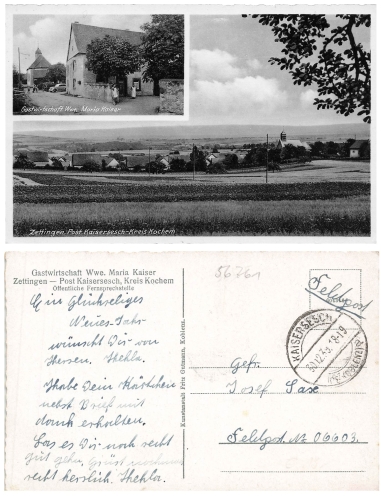 Gastwirtschaft Wwe. Maria Kaiser
Zettingen, Post Kaisersesch-Kreis Kochem
Gastwirtschaft Wwe. Maria Kaiser
Zettingen — Post Kaisersesch, Kreis Kochem
Öffentliche Fernsprechstelle
56761
Feldpost
Ein Glückseliges
Neues Jahr
wünscht Dir von
Herzen. Thekla.
Habe Dein Kärtchen
nebst Brief mit
dank erhalten.
Las es Dir noch recht
gut gehn. Grüst nochmals
recht herzlich Thekla.
Kunstanstalt Fritz Gutmann, Koblenz.
KAISERSESCH
30.12.43.18-19
Gefr.
Josef Saxe
Feldpost. Nr 06603.